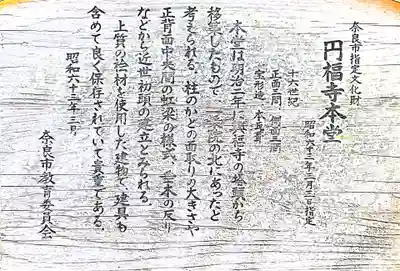 奈良市指定文化財
円福寺本堂
昭和六十二年三月三日指定
十六世紀
正面三間 側面三間
宝形造 本瓦葺
本堂は明治二年に興福寺の塔頭から
移築したもので の北にあったと
考えられる。柱のかどの面取りの大きさや
正背面中央間の虹梁の様式、垂木の反り
などから近世初頭の建立とみられる。
上質の絵材を使用した建物で、建具も
含めて良く保存されていて貴重である。
昭和六十三年三月
奈良市教育委員会